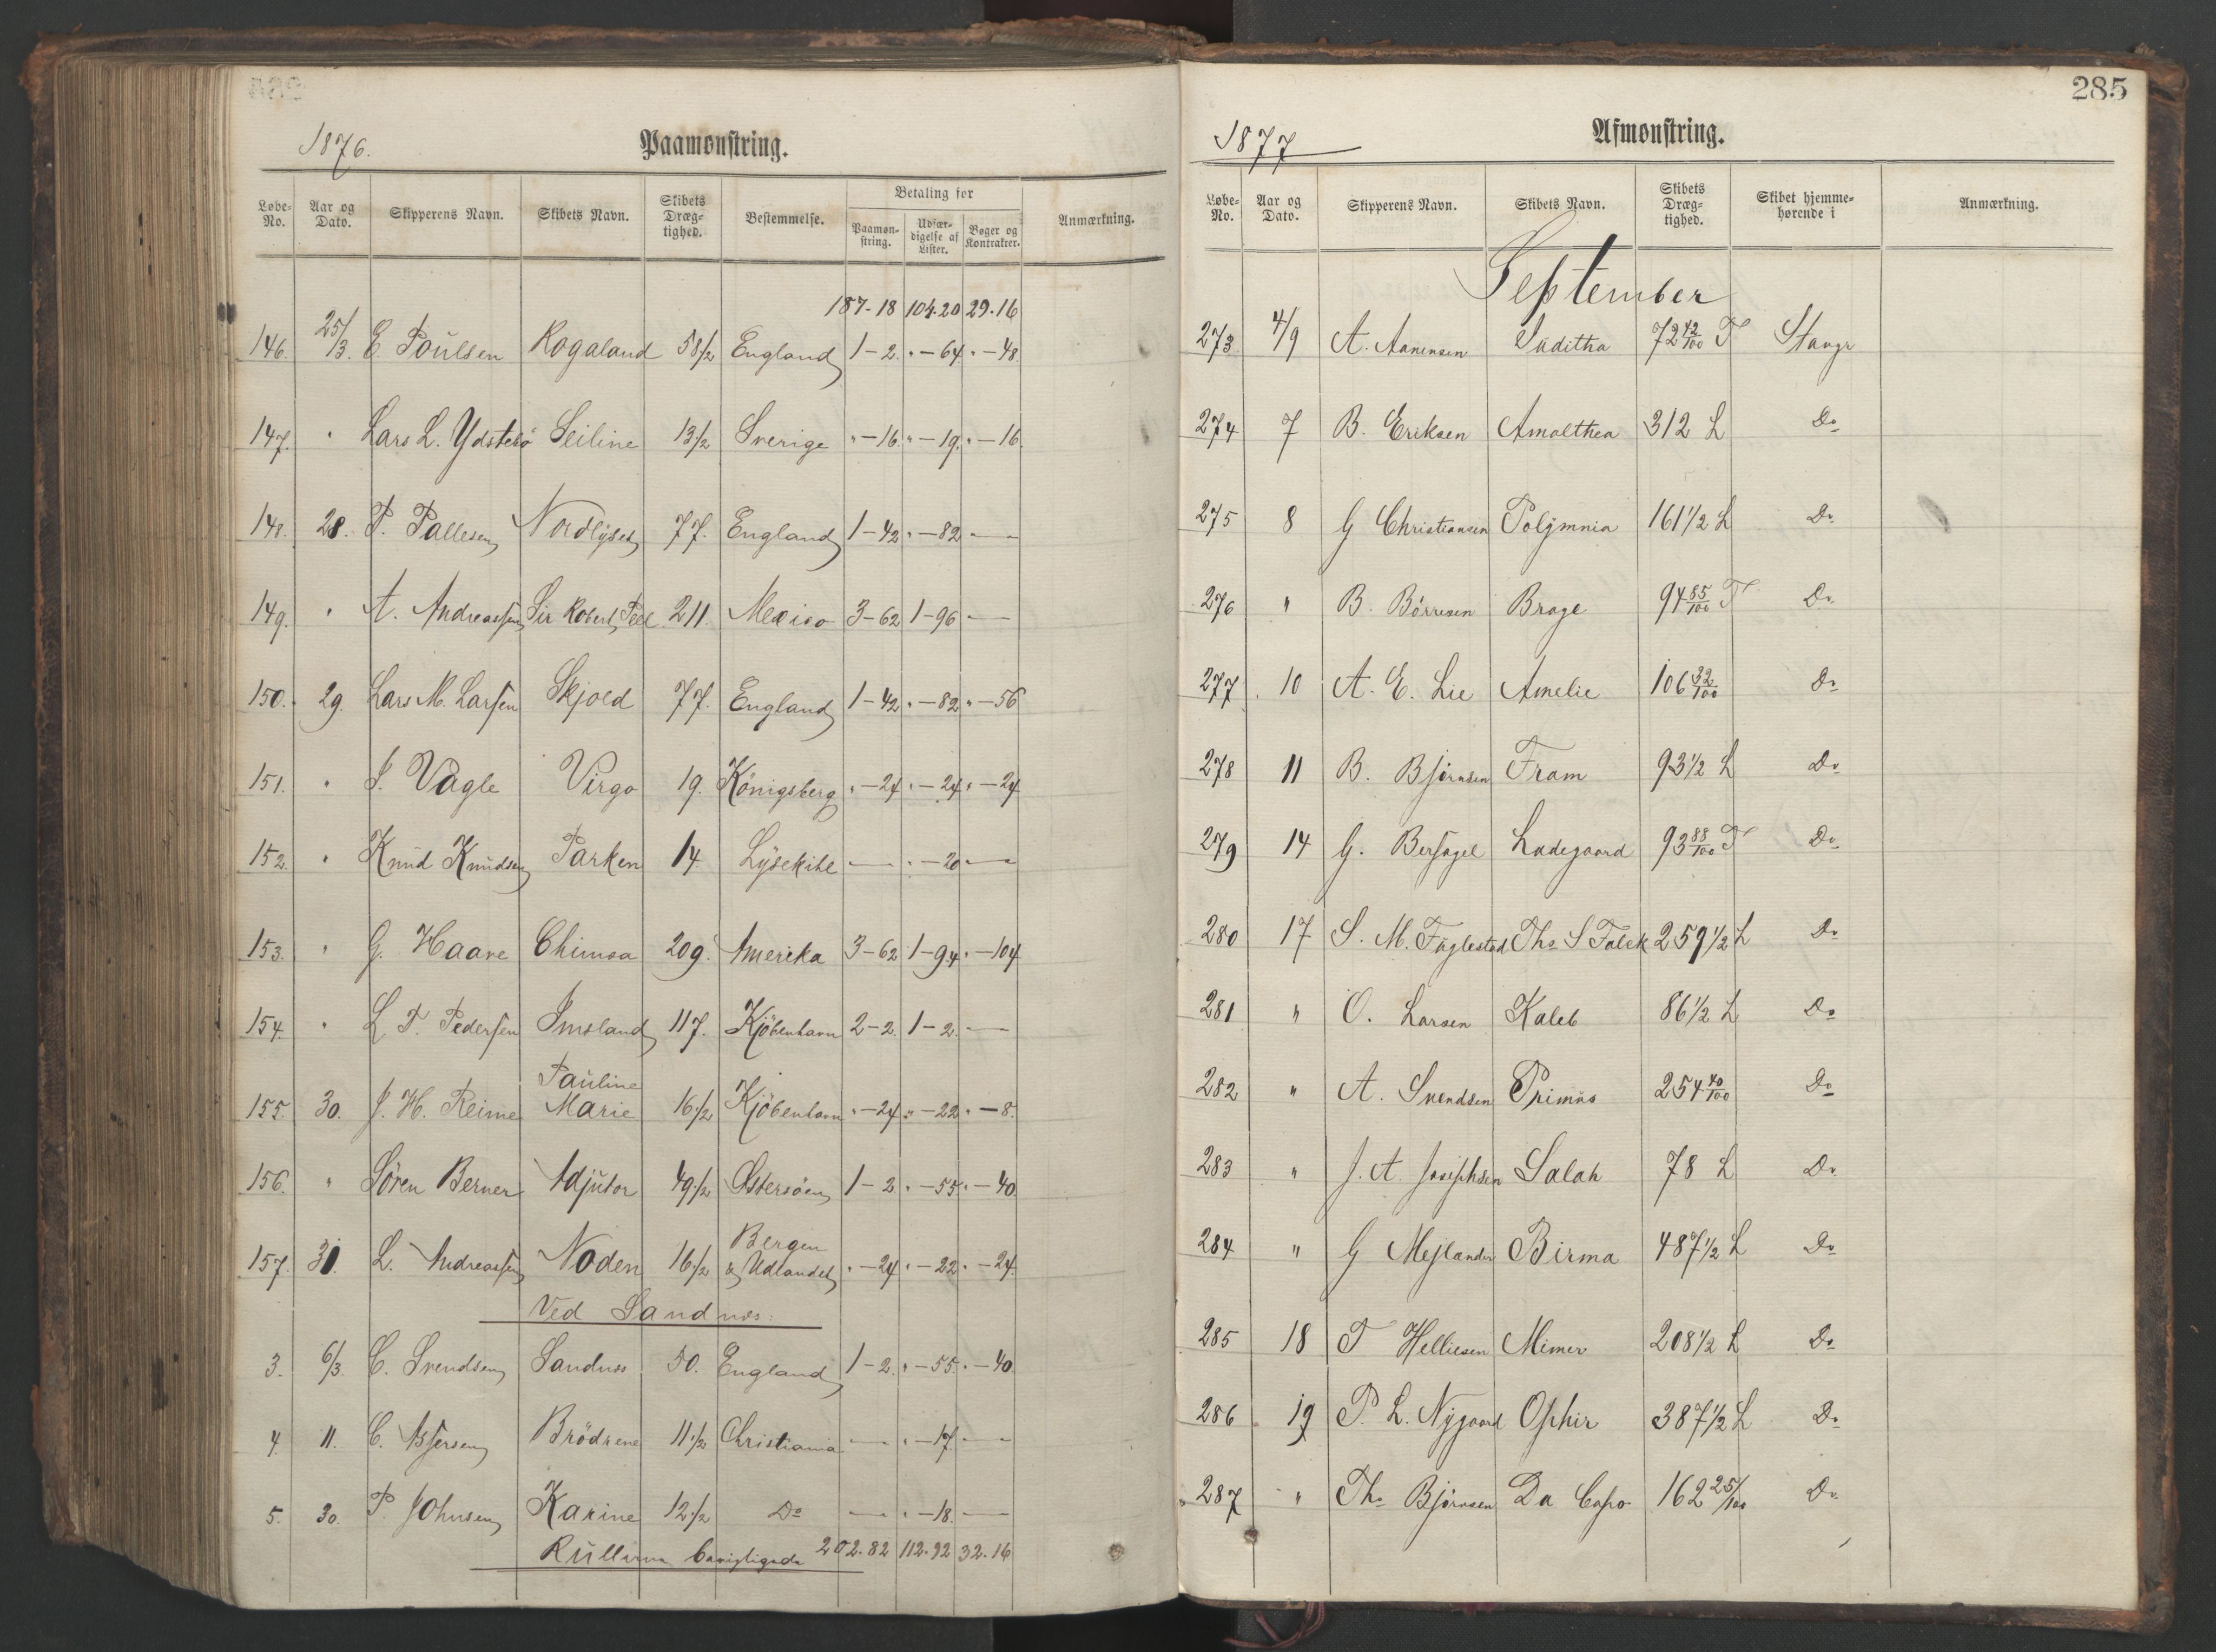 1876.
Paamønstring.
Løbe-No. Aar og Dato. Skipperens Navn. Skibets Navn. Skibets Dræg-tighed. Bestemmelse. Betaling for Paamøn-string. Udfær-digelse af Lister. Bøger og Kontrakter. Anmærkning.
187-18 104.20 29.16
146. 25/3. E. Poulsen Rogaland 58 1/2 England 1-2. "-64. "-48
147. " Lars L. Ydstebö Seiline 13 1/2 Sverige "-16. "-19. "-16.
148. 28. P. Pallesen Nordlyset 77. England 1-42 "-82 "—
149. " A. Andreassen Sir Robert Peel 211. Mexico 3-62 1-96 "—
150. 29. Lars M. Larsen Skjold 77. England 1-42 "-82 "-56
151. " J. Vagle Virgo 19. Königsberg "-24 "-24 "-24
152. " Knud Knudsen Parken 14 Lysekihl — "-20 —
153. " G. Haave Chimoa 209. Amerika 3-62 1-94 "-104
154. " L. T. Pedersen Imsland 117. Kjöbenhavn 2-2. 1-2. —
155. 30. J. H. Reime Pauline Marie 16 1/2 Kjöbenhavn "-24 "-22 "-8.
156. " Sören Berner Adjutor 49 1/2 Östersöen 1-2 "-55 "-40
157. 31. L. Andreassen Noden 16 1/2 Bergen & Udlandet "-24 "-22 "-24.
Ved Sandnæs.
3. 6/3. C. Svendsen Sandnæs 50. England 1-2. "-55. "-40.
4. 11. C. Brödrene 11 1/2 Christiania — "-17 —
5. 30. P. Johnsen Karine 12 1/2 Do — "-18. —
202.82 112.92 32.16
285
1877
Afmønstring.
Løbe-No. Aar og Dato. Skipperens Navn. Skibets Navn. Skibets Dræg-tighed. Skibet hjemme-hørende i Anmærkning.
September
273 4/9 A. Aanensen Juditha 72 42/100 T Stavgr
274 7 B. Eriksen Amalthea 312 L Do
275 8 G Christiansen Polymnia 161 1/2 L Do
276 " B. Börresen Brage 94 85/100 T Do
277 10 A. E. Lie Amelie 106 32/100 Do
278 11 B. Bjørnsen Fram 93 1/2 L Do
279 14 G. Bersagel Ladegaard 93 88/100 T Do
280 17 S. M. Fuglestad Ths S Falck 259 1/2 L Do
281 " O. Larsen Kaleb 86 1/2 L Do
282 " A. Svendsen Primus 254 40/100 Do
283 " J. A. Josephsen Salah 78 L Do
284 " G Mejlander Birma 487 1/2 L Do
285 18 T Helliesen Mimer 208 1/2 L Do
286 19 P. L. Nygaard Ophir 387 1/2 L Do
287 " Ths Bjørnsen Da Capo 162 25/100 Do